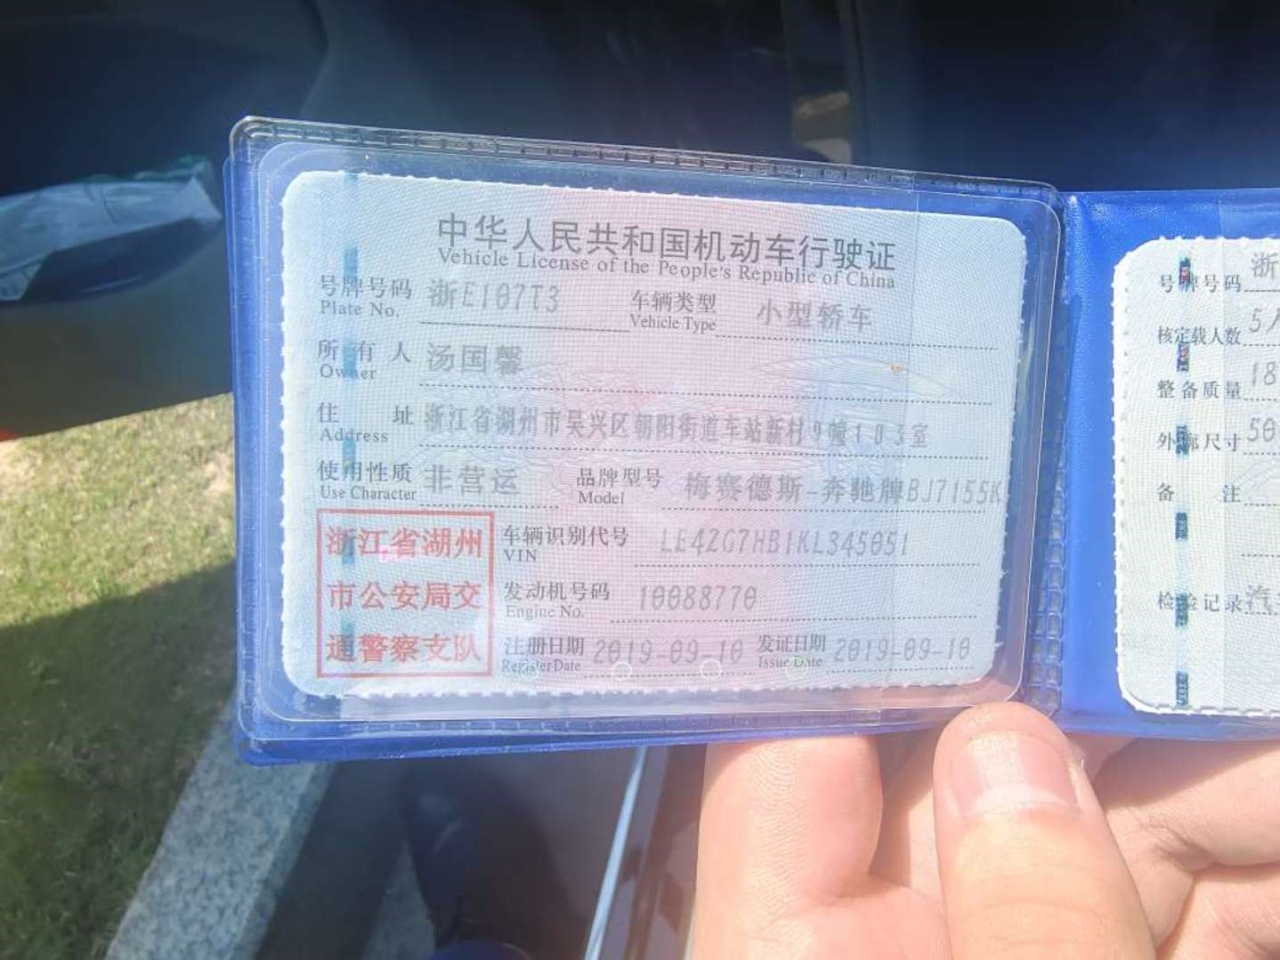 中华人民共和国机动车行驶证
Vehicle License of the People's Republic of China
号牌号码 浙E107T3 车辆类型 小型轿车
Plate No. Vehicle Type
所有人 汤国馨
Owner
住址 浙江省湖州市吴兴区朝阳街道车站新村9幢103室
Address
使用性质 非营运 品牌型号 梅赛德斯-奔驰牌BJ7155K
Use Character Model
浙江省湖州
市公安局交
通警察支队
车辆识别代号 LE42G7HB1KL345051
VIN
发动机号码 10088770
Engine No.
注册日期 2019-09-10 发证日期 2019-09-10
Register Date Issue Date
号牌号码 浙
核定载人数 5人
整备质量 18
外廓尺寸 50
备注
检验记录